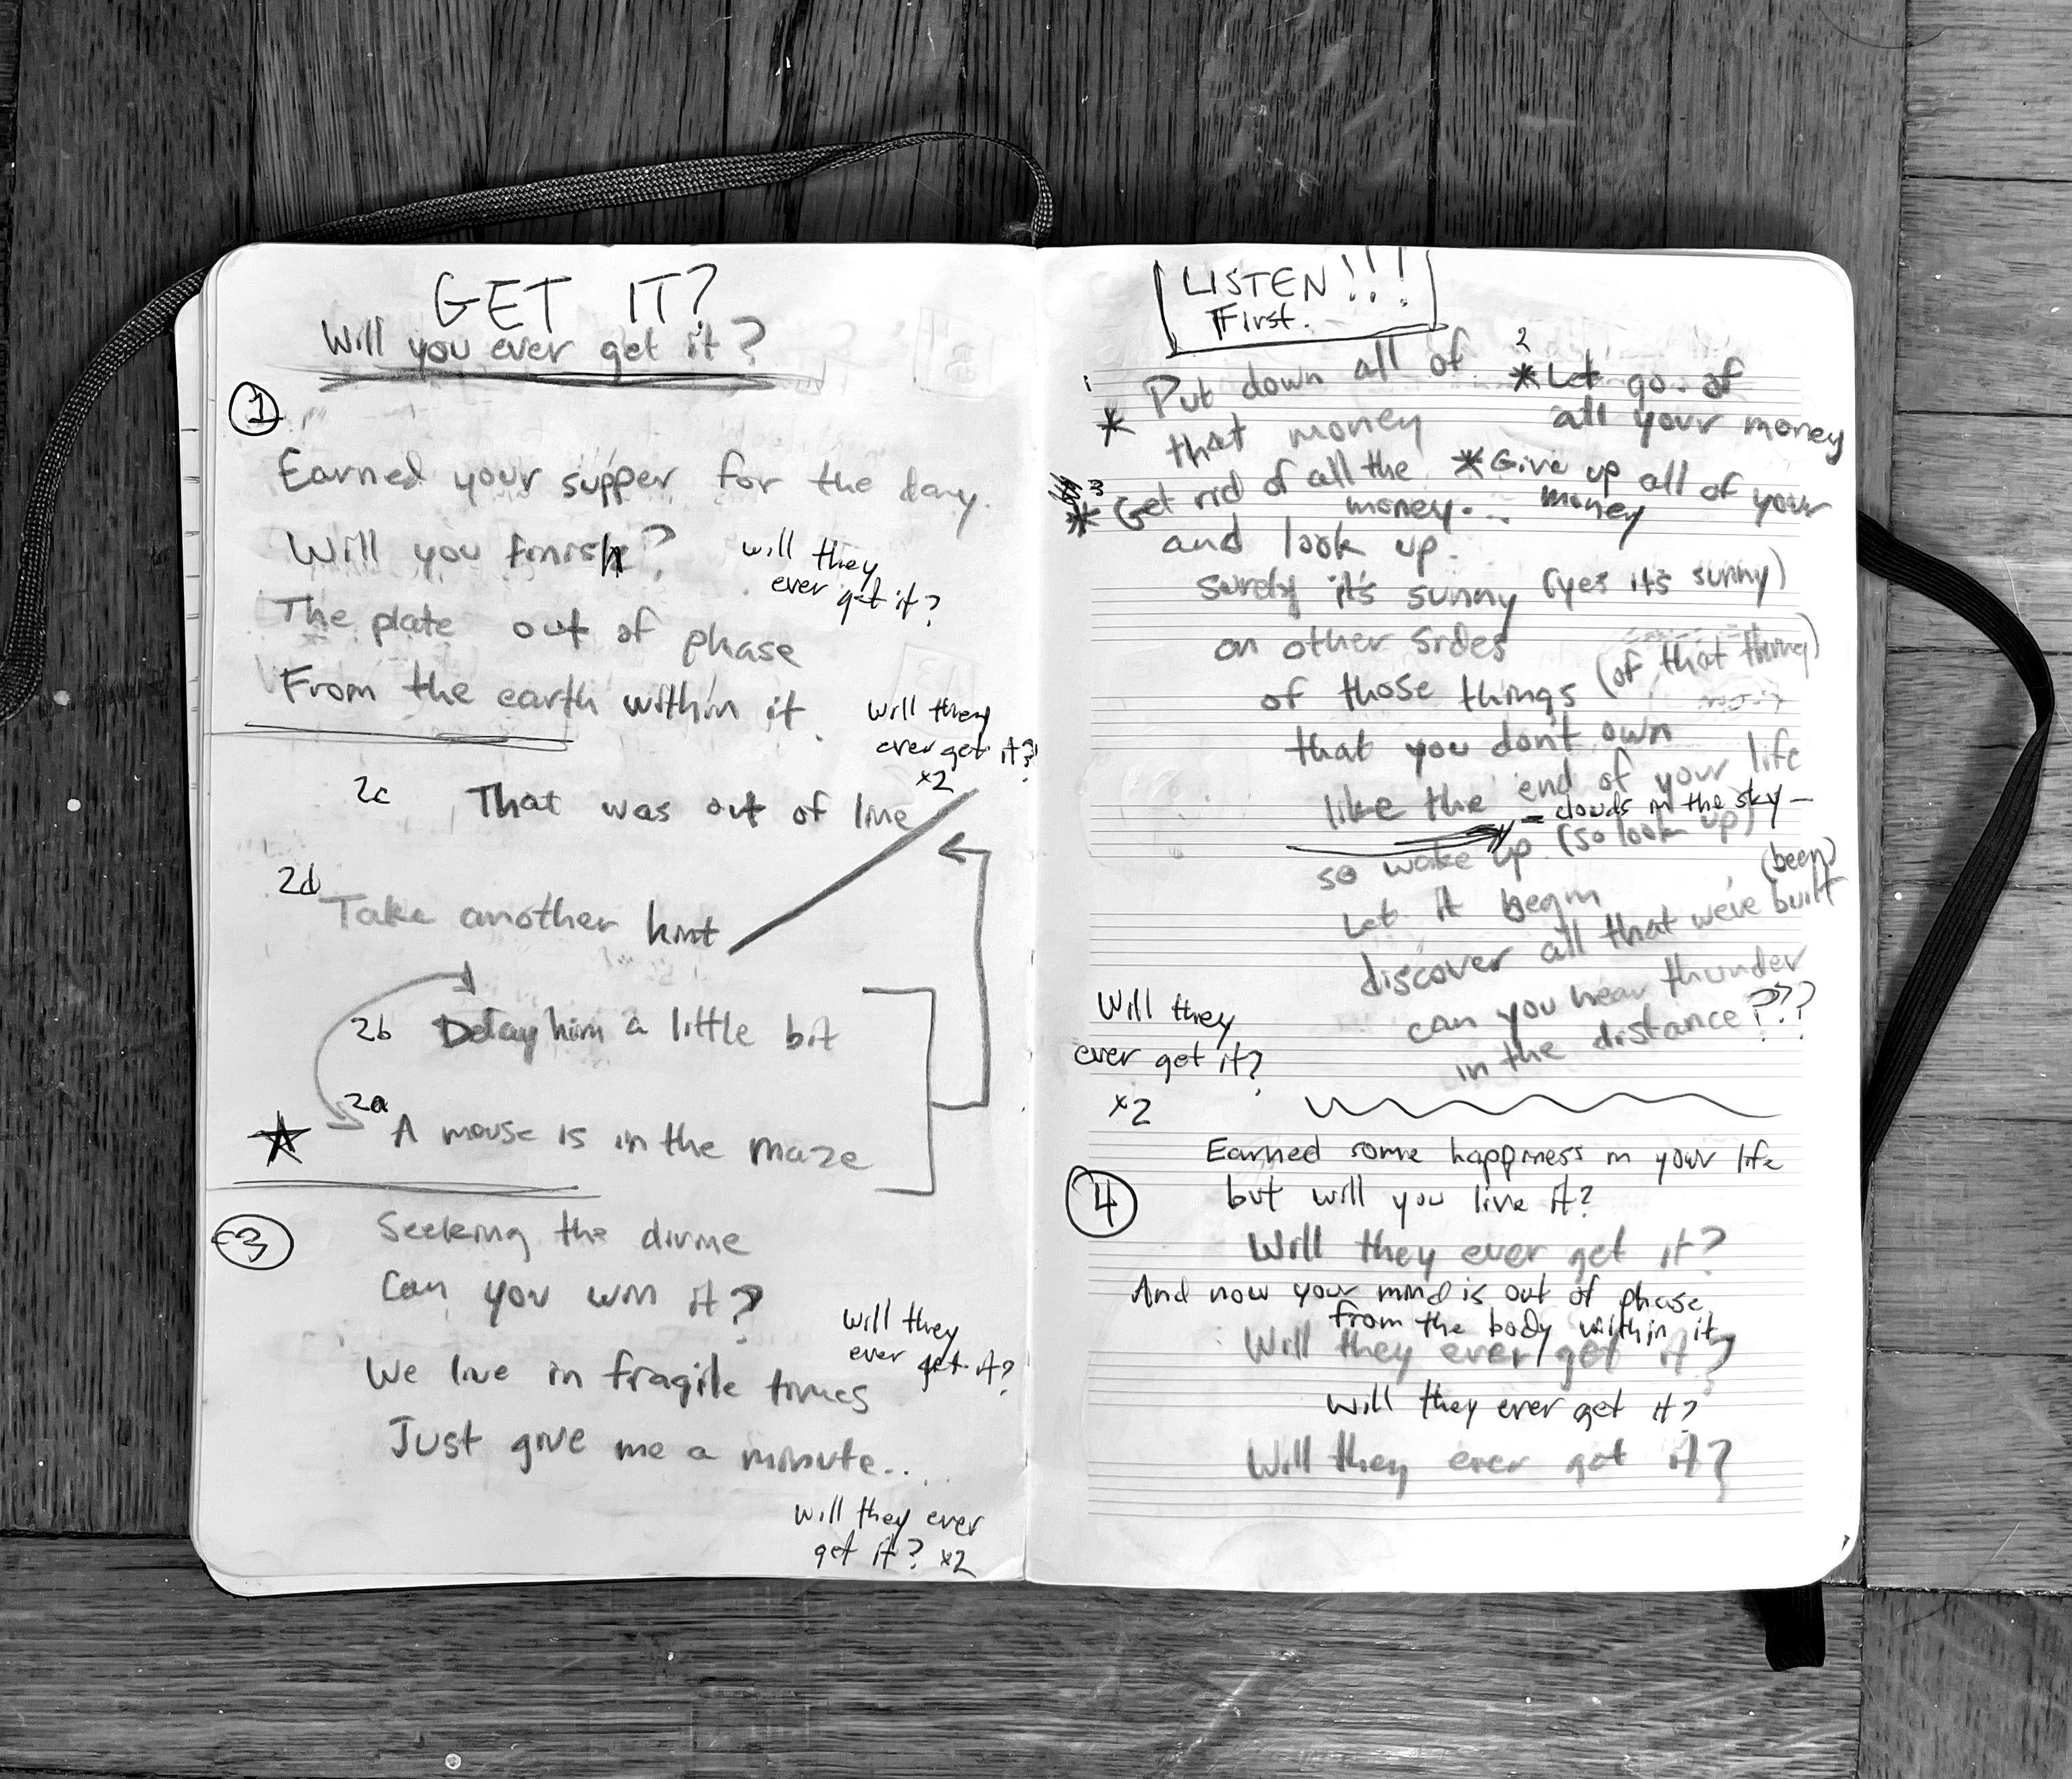 GET IT?
Will you ever get it?
1
Earned your supper for the day.
Will you finish?
will they
ever get it?
The plate out of phase
From the earth within it.
Will they
ever get it?
x2
2c That was out of line
2d
Take another hint
2b Delay him a little bit
2a A mouse is in the maze
3
Seeking the divine
Can you win it?
will they
ever get it?
We live in fragile times
Just give me a minute...
Will they ever
get it? x2
LISTEN!!!
First.
1 * Put down all of
that money
2 * Let go of
all your money
3 * Get rid of all the
money...
* Give up all of your
money
and look up.
Surely it's sunny (yes it's sunny)
on other sides
of those things (of that thing)
that you don't own
like the end of your life
- clouds in the sky -
so wake up (so look up)
Let it begin
(been)
discover all that we've built
can you hear thunder
in the distance???
Will they
ever get it?
x2
4
Earned some happiness in your life
but will you live it?
Will they ever get it?
And now your mind is out of phase
from the body within it
Will they ever get it?
Will they ever get it?
Will they ever get it?